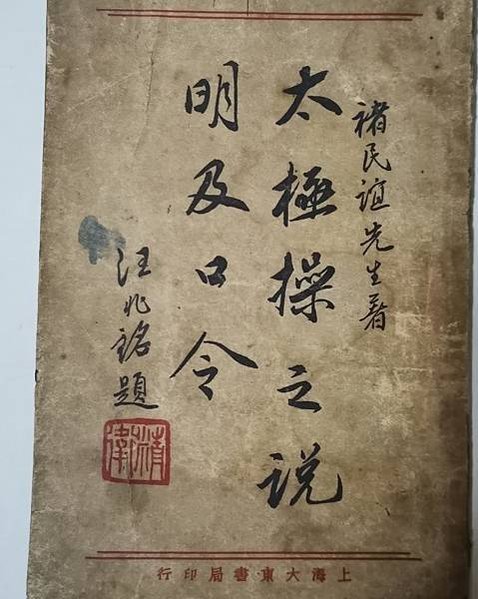 褚民谊先生著
太極操之说
明及口令
汪兆銘題
精衛
上海大東書局印行